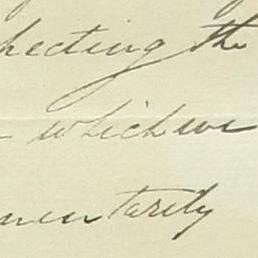 pecting the
which we
mentarily